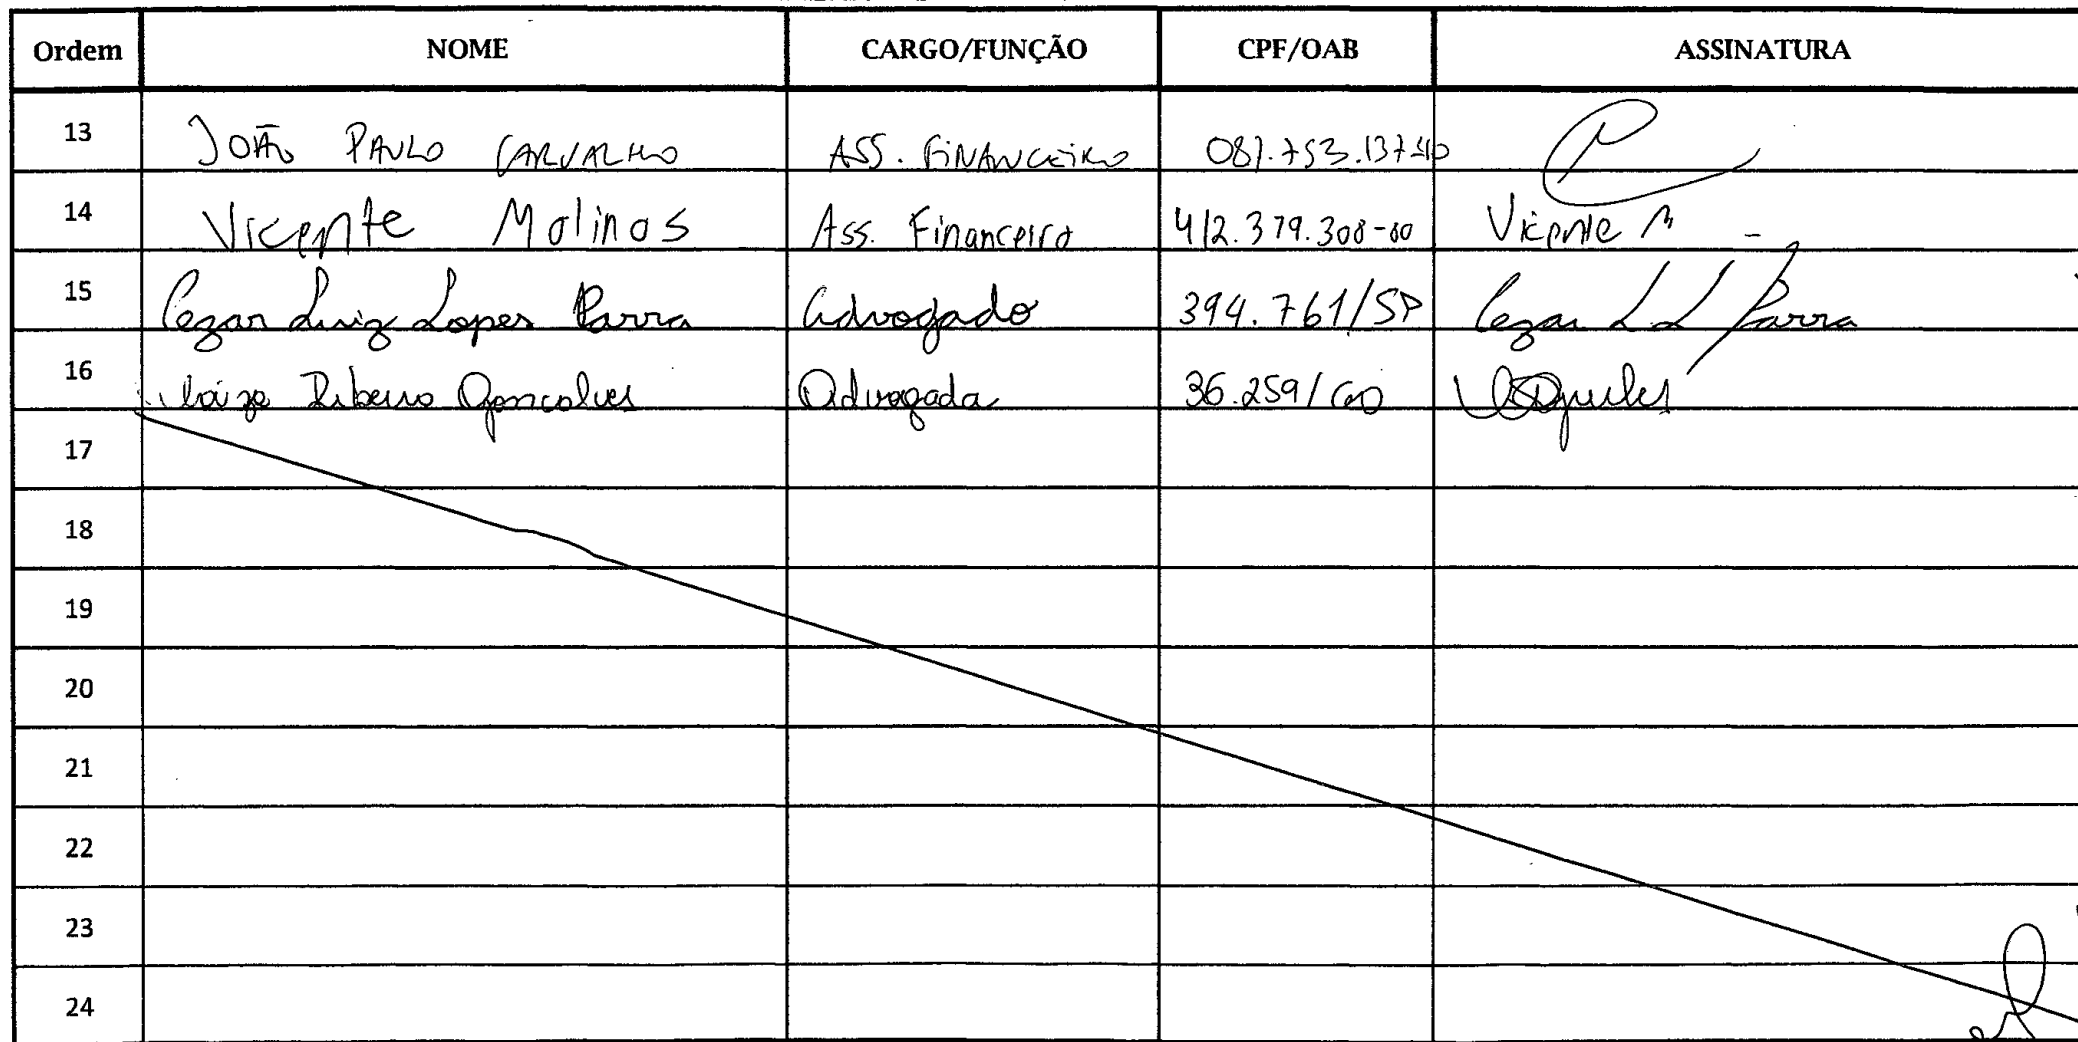 Ordem NOME CARGO/FUNÇÃO CPF/OAB ASSINATURA
13 JOÃO PAULO CARVALHO ASS. FINANCEIRO
14 Vicente Molinos Ass. Financeiro 412.379.308-00 Vicente M
15 Cezar Luiz Lopes Parra Advogado 394.761/SP Cezar L L Parra
16 Ribeiro Goncalves Advogada 36.259/GO
17
18
19
20
21
22
23
24